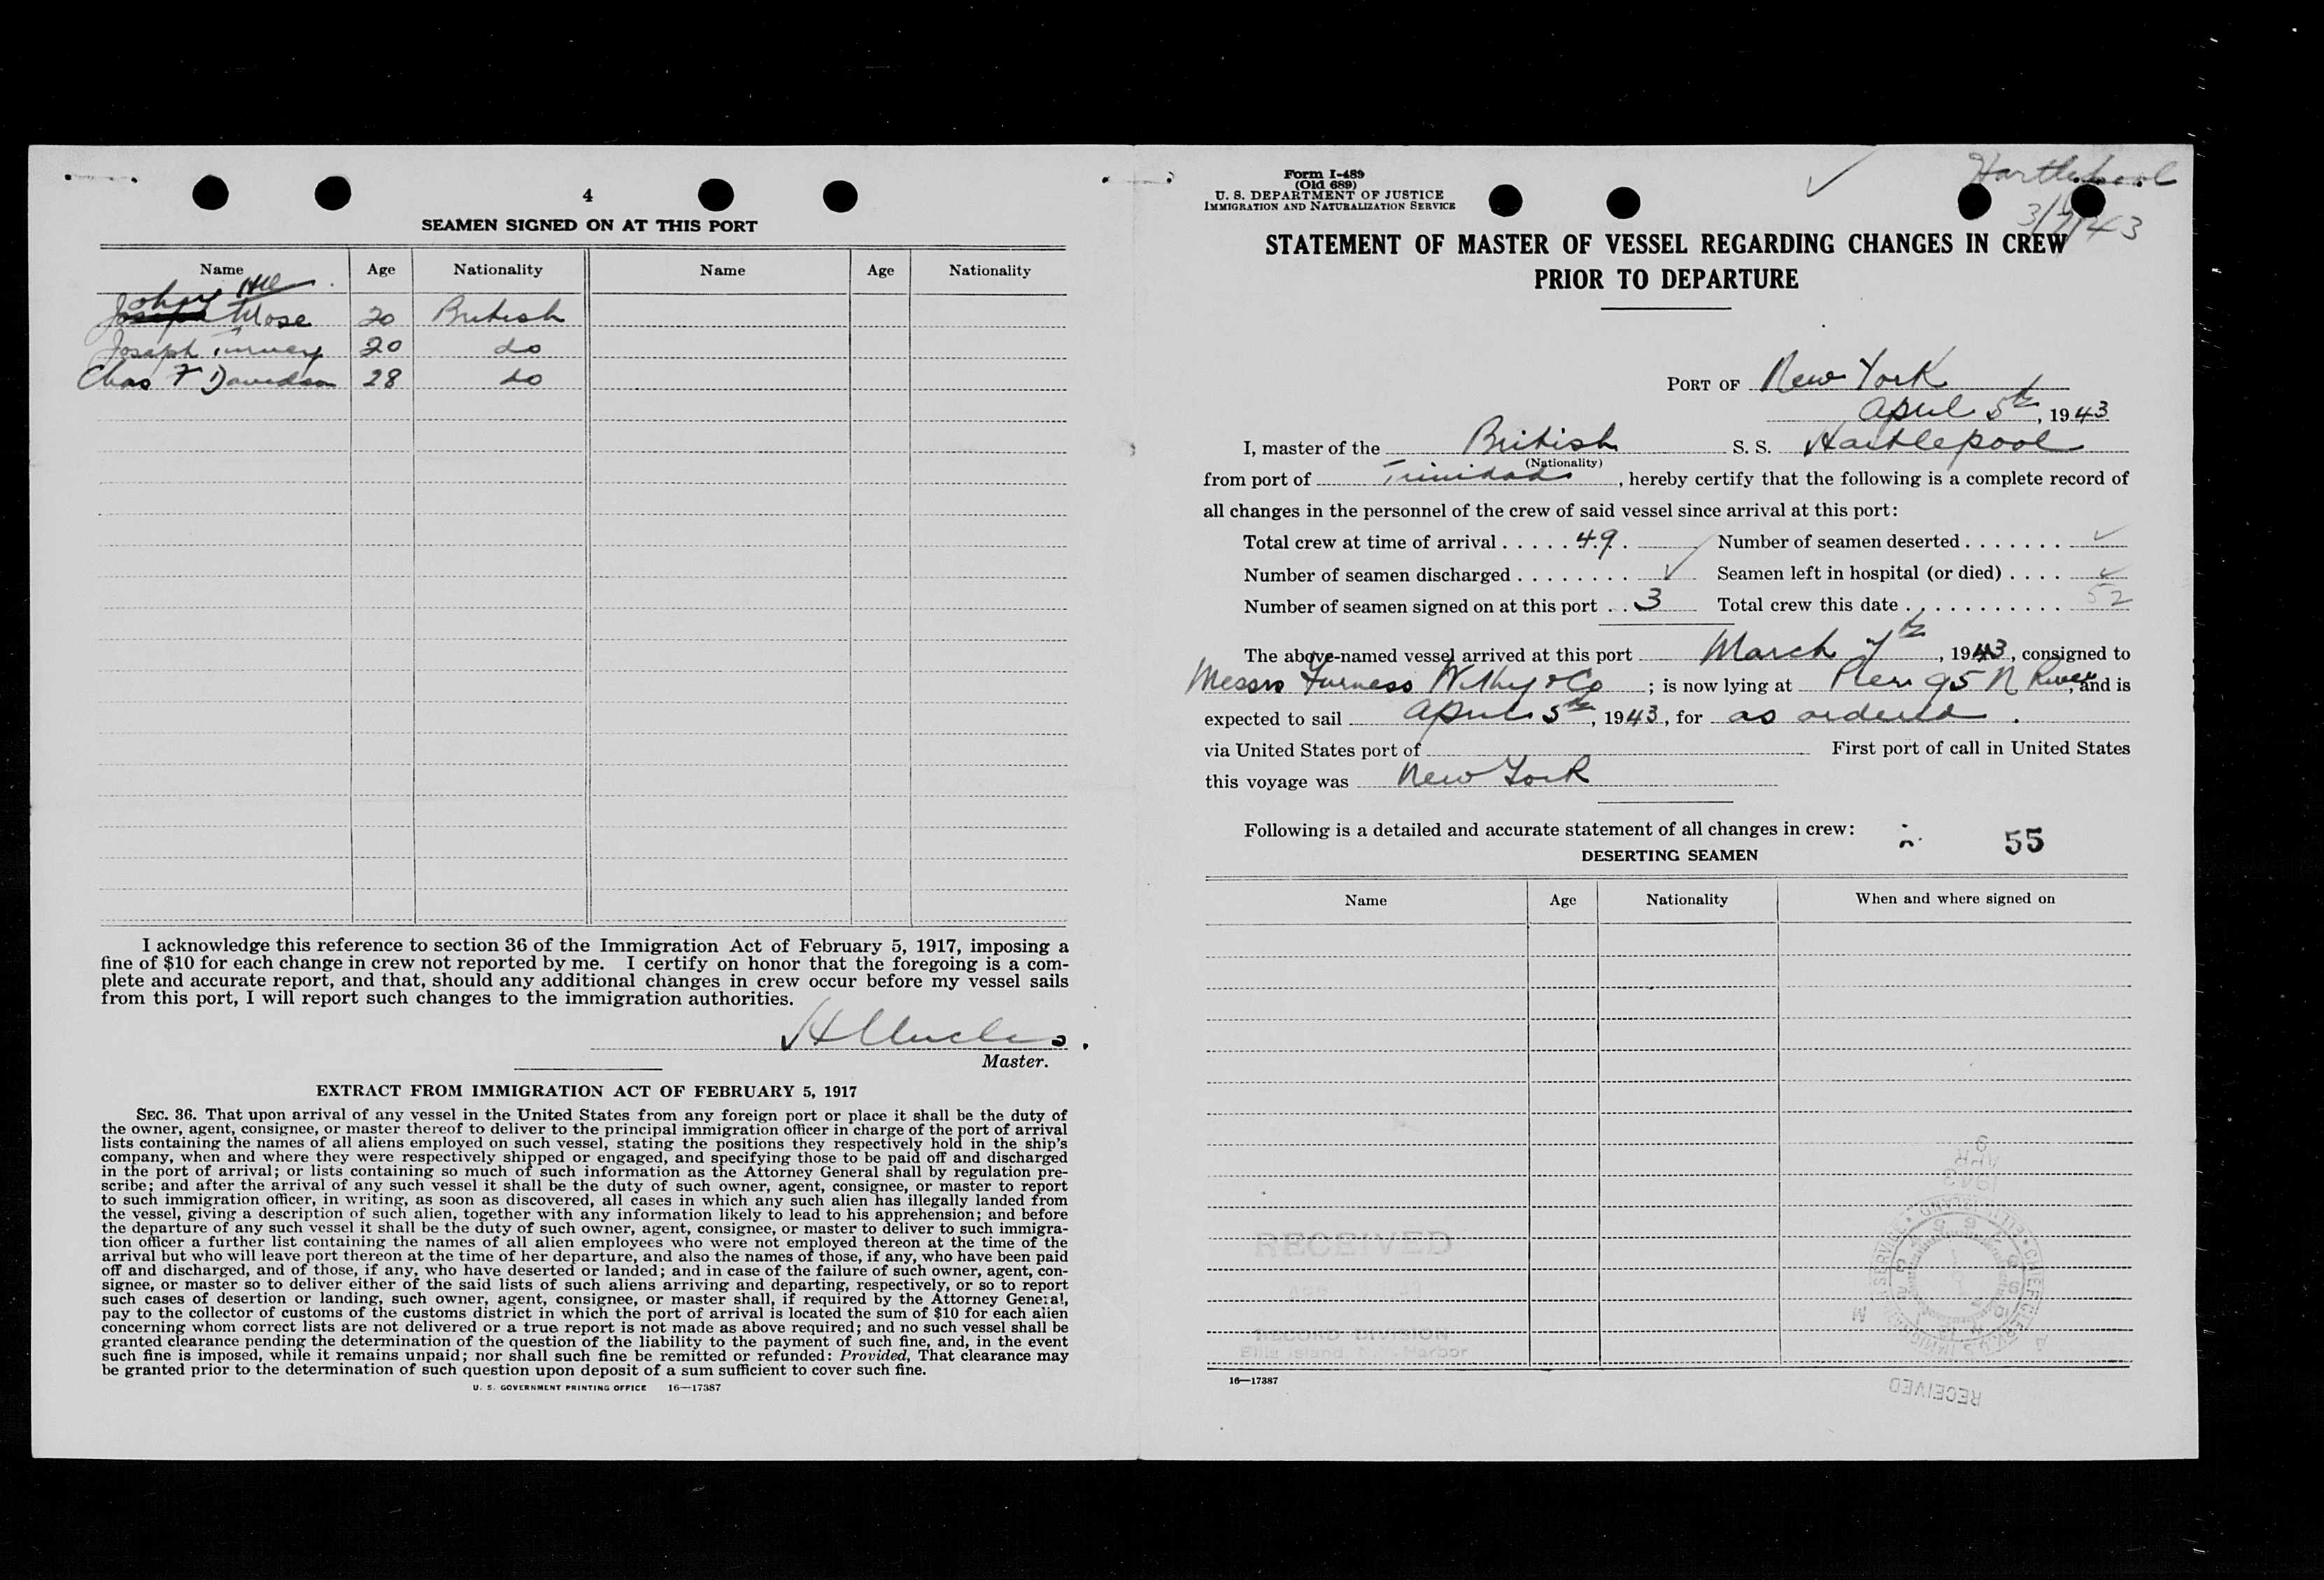 4
SEAMEN SIGNED ON AT THIS PORT
Name Age Nationality Name Age Nationality
John Mose 20 British
Joseph Turvey 20 do
Chas F Davidson 28 do
I acknowledge this reference to section 36 of the Immigration Act of February 5, 1917, imposing a
fine of $10 for each change in crew not reported by me. I certify on honor that the foregoing is a com-
plete and accurate report, and that, should any additional changes in crew occur before my vessel sails
from this port, I will report such changes to the immigration authorities.
Master.
EXTRACT FROM IMMIGRATION ACT OF FEBRUARY 5, 1917
SEC. 36. That upon arrival of any vessel in the United States from any foreign port or place it shall be the duty of
the owner, agent, consignee, or master thereof to deliver to the principal immigration officer in charge of the port of arrival
lists containing the names of all aliens employed on such vessel, stating the positions they respectively hold in the ship's
company, when and where they were respectively shipped or engaged, and specifying those to be paid off and discharged
in the port of arrival; or lists containing so much of such information as the Attorney General shall by regulation pre-
scribe; and after the arrival of any such vessel it shall be the duty of such owner, agent, consignee, or master to report
to such immigration officer, in writing, as soon as discovered, all cases in which any such alien has illegally landed from
the vessel, giving a description of such alien, together with any information likely to lead to his apprehension; and before
the departure of any such vessel it shall be the duty of such owner, agent, consignee, or master to deliver to such immigra-
tion officer a further list containing the names of all alien employees who were not employed thereon at the time of the
arrival but who will leave port thereon at the time of her departure, and also the names of those, if any, who have been paid
off and discharged, and of those, if any, who have deserted or landed; and in case of the failure of such owner, agent, con-
signee, or master so to deliver either of the said lists of such aliens arriving and departing, respectively, or so to report
such cases of desertion or landing, such owner, agent, consignee, or master shall, if required by the Attorney General,
pay to the collector of customs of the customs district in which the port of arrival is located the sum of $10 for each alien
concerning whom correct lists are not delivered or a true report is not made as above required; and no such vessel shall be
granted clearance pending the determination of the question of the liability to the payment of such fine, and, in the event
such fine is imposed, while it remains unpaid; nor shall such fine be remitted or refunded: Provided, That clearance may
be granted prior to the determination of such question upon deposit of a sum sufficient to cover such fine.
U. S. GOVERNMENT PRINTING OFFICE 16—17387
Form I-489
(Old 689)
U. S. DEPARTMENT OF JUSTICE
IMMIGRATION AND NATURALIZATION SERVICE
Hartlepool
3/7/43
STATEMENT OF MASTER OF VESSEL REGARDING CHANGES IN CREW
PRIOR TO DEPARTURE
PORT OF New York
April 5th, 1943
I, master of the British S. S. Hartlepool
(Nationality)
from port of Trinidad, hereby certify that the following is a complete record of
all changes in the personnel of the crew of said vessel since arrival at this port:
Total crew at time of arrival . . . . . 49 . Number of seamen deserted . . . . . . . ✓
Number of seamen discharged . . . . . . . . ✓ Seamen left in hospital (or died) . . . . ✓
Number of seamen signed on at this port . . 3 Total crew this date . . . . . . . . . . . 52
The above-named vessel arrived at this port March 7th, 1943, consigned to
Messrs Furness Withy & Co ; is now lying at Pier 95 N River, and is
expected to sail April 5th, 1943, for as ordered .
via United States port of First port of call in United States
this voyage was New York
Following is a detailed and accurate statement of all changes in crew: 55
DESERTING SEAMEN
Name Age Nationality When and where signed on
RECEIVED
RECORD DIVISION
Ellis Island, N.Y. Harbor
1943
APR
6
16—17387
RECEIVED